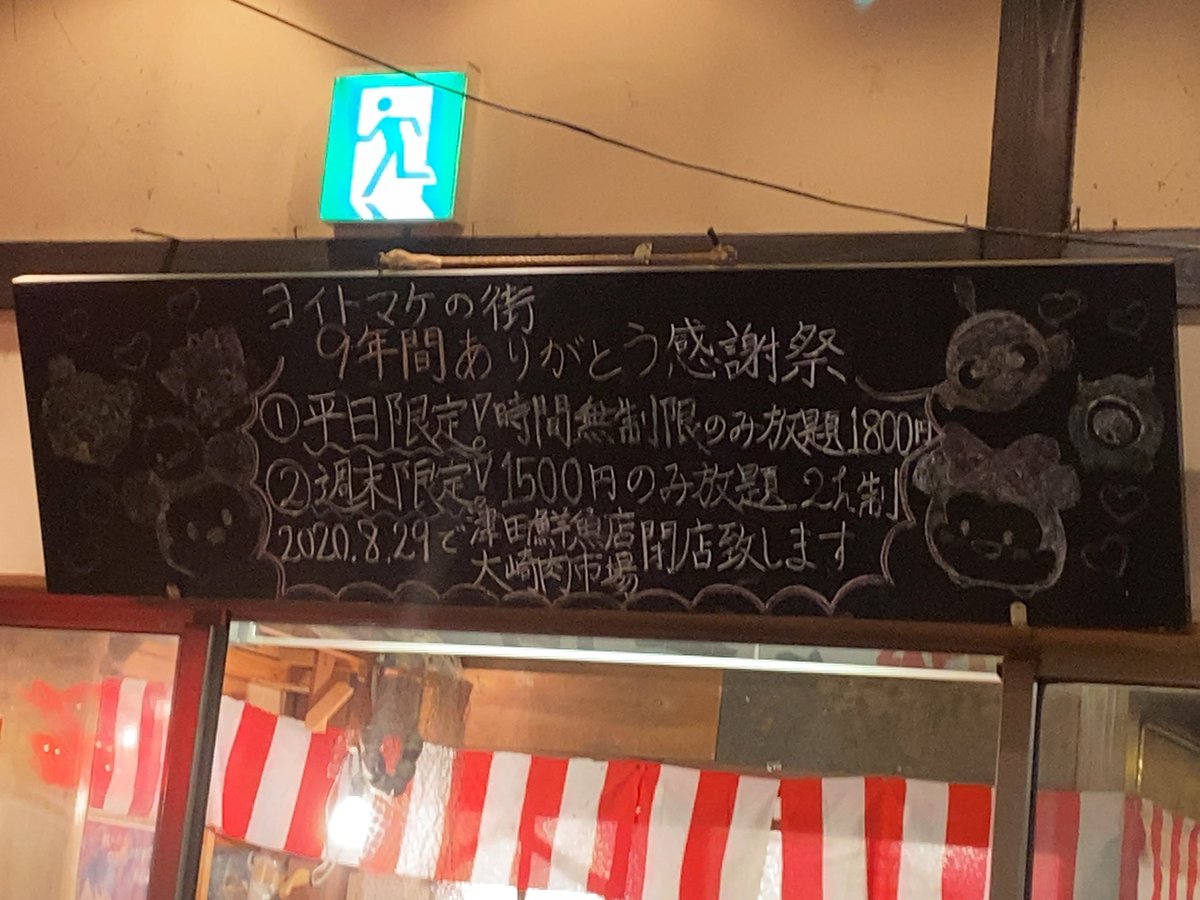 ヨイトマケの街
9年間ありがとう感謝祭
①平日限定!時間無制限のみ放題1800円
②週末限定!1500円のみ放題 2h制
2020.8.29で津田鮮魚店
大崎肉市場閉店致します